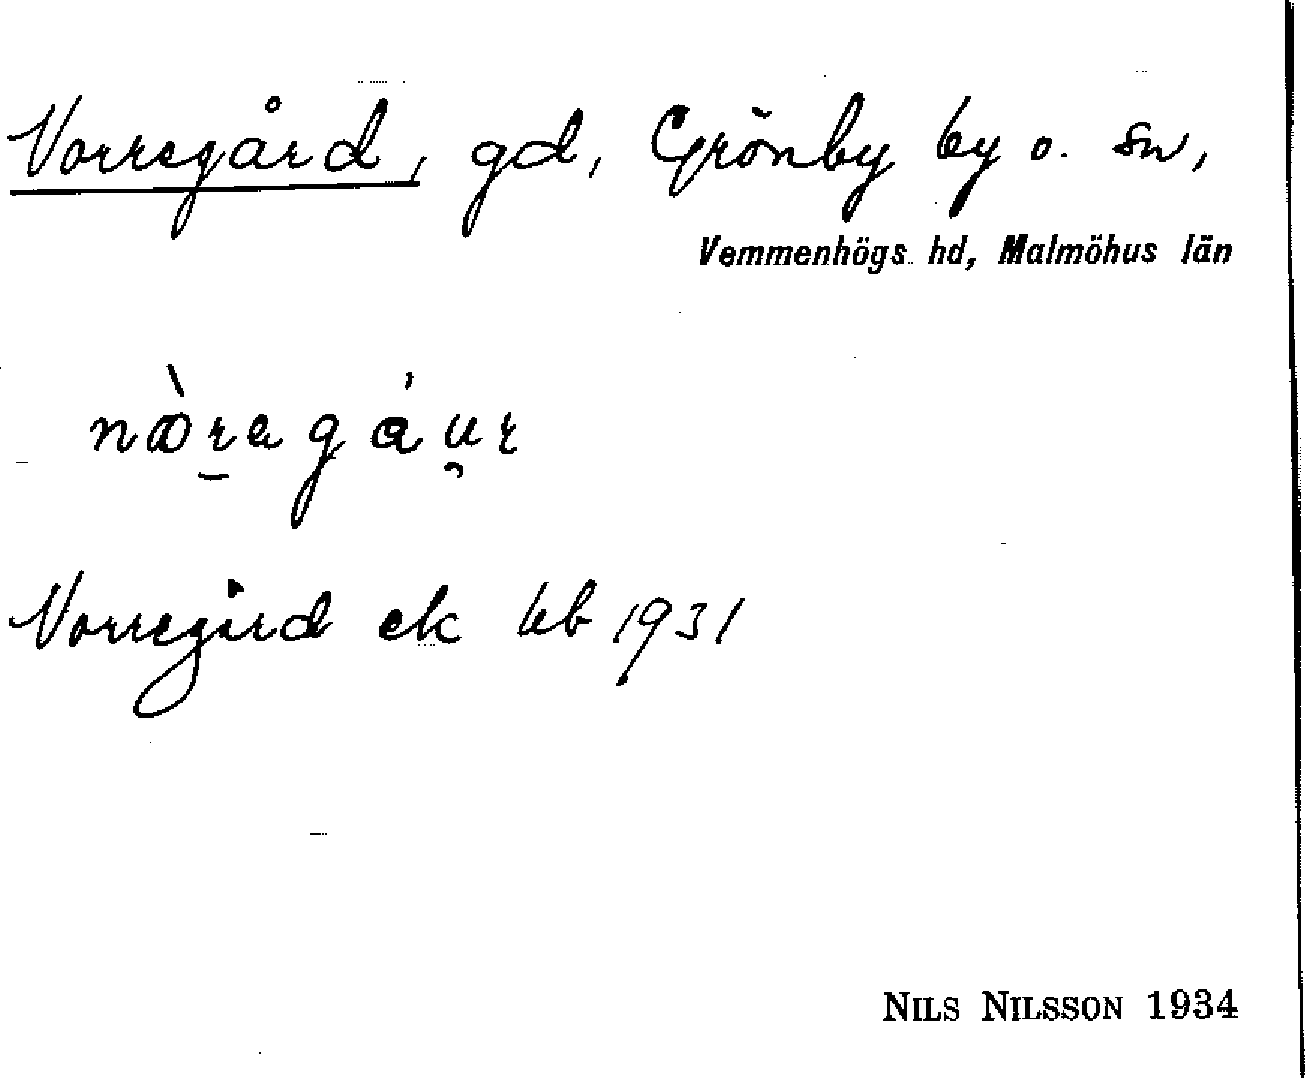 Norregård, gd, Grönby by o. sn,
Vemmenhögs hd, Malmöhus län
Norregård ek kb 1931
NILS NILSSON 1934